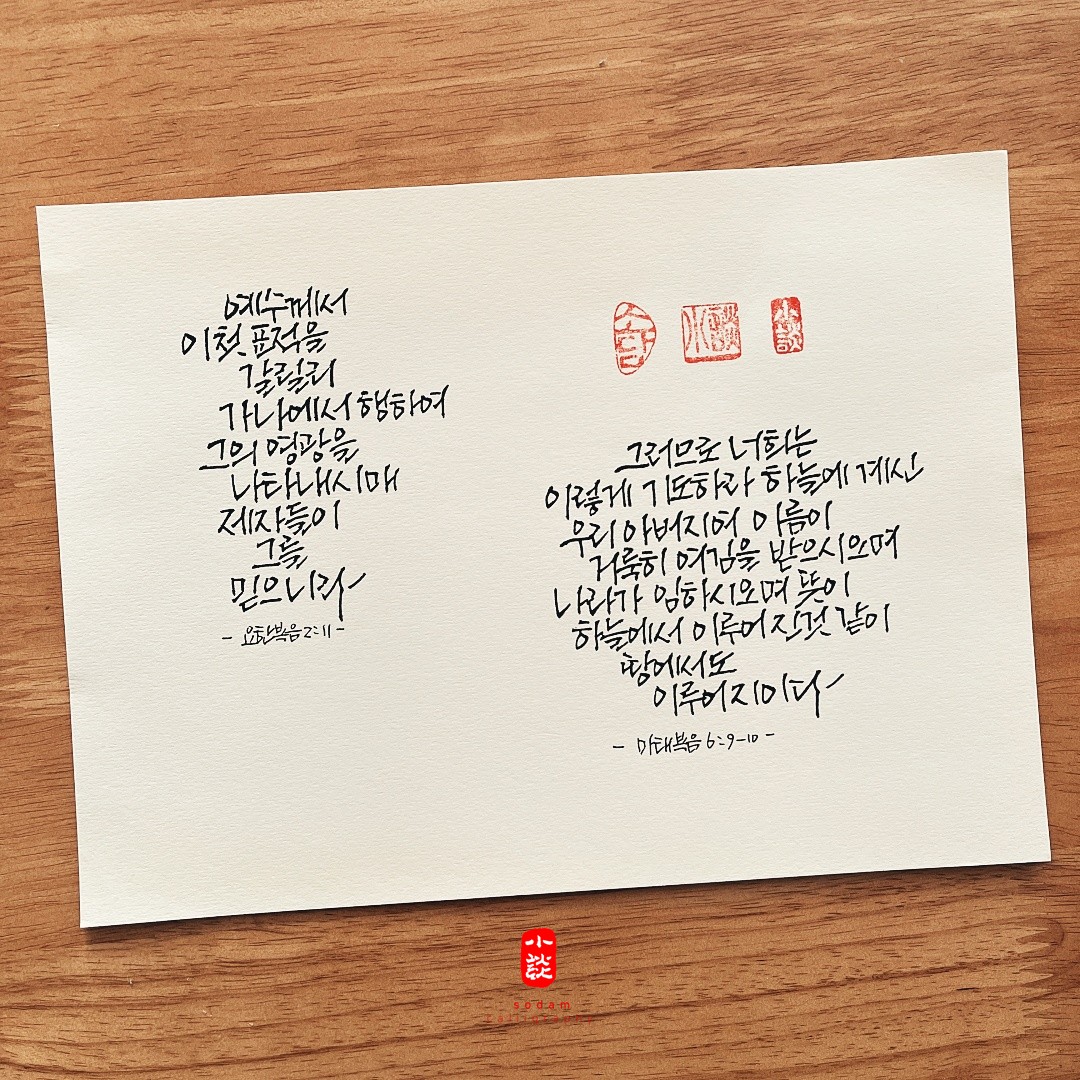 예수께서
이 첫 표적을
갈릴리
가나에서 행하여
그의 영광을
나타내시매
제자들이
그를
믿으니라
- 요한복음 2:11 -
小談
小談
그러므로 너희는
이렇게 기도하라 하늘에 계신
우리 아버지여 이름이
거룩히 여김을 받으시오며
나라가 임하시오며 뜻이
하늘에서 이루어 진것 같이
땅에서도
이루어지이다
- 마태복음 6:9-10 -
小談
sodam
calligraphy